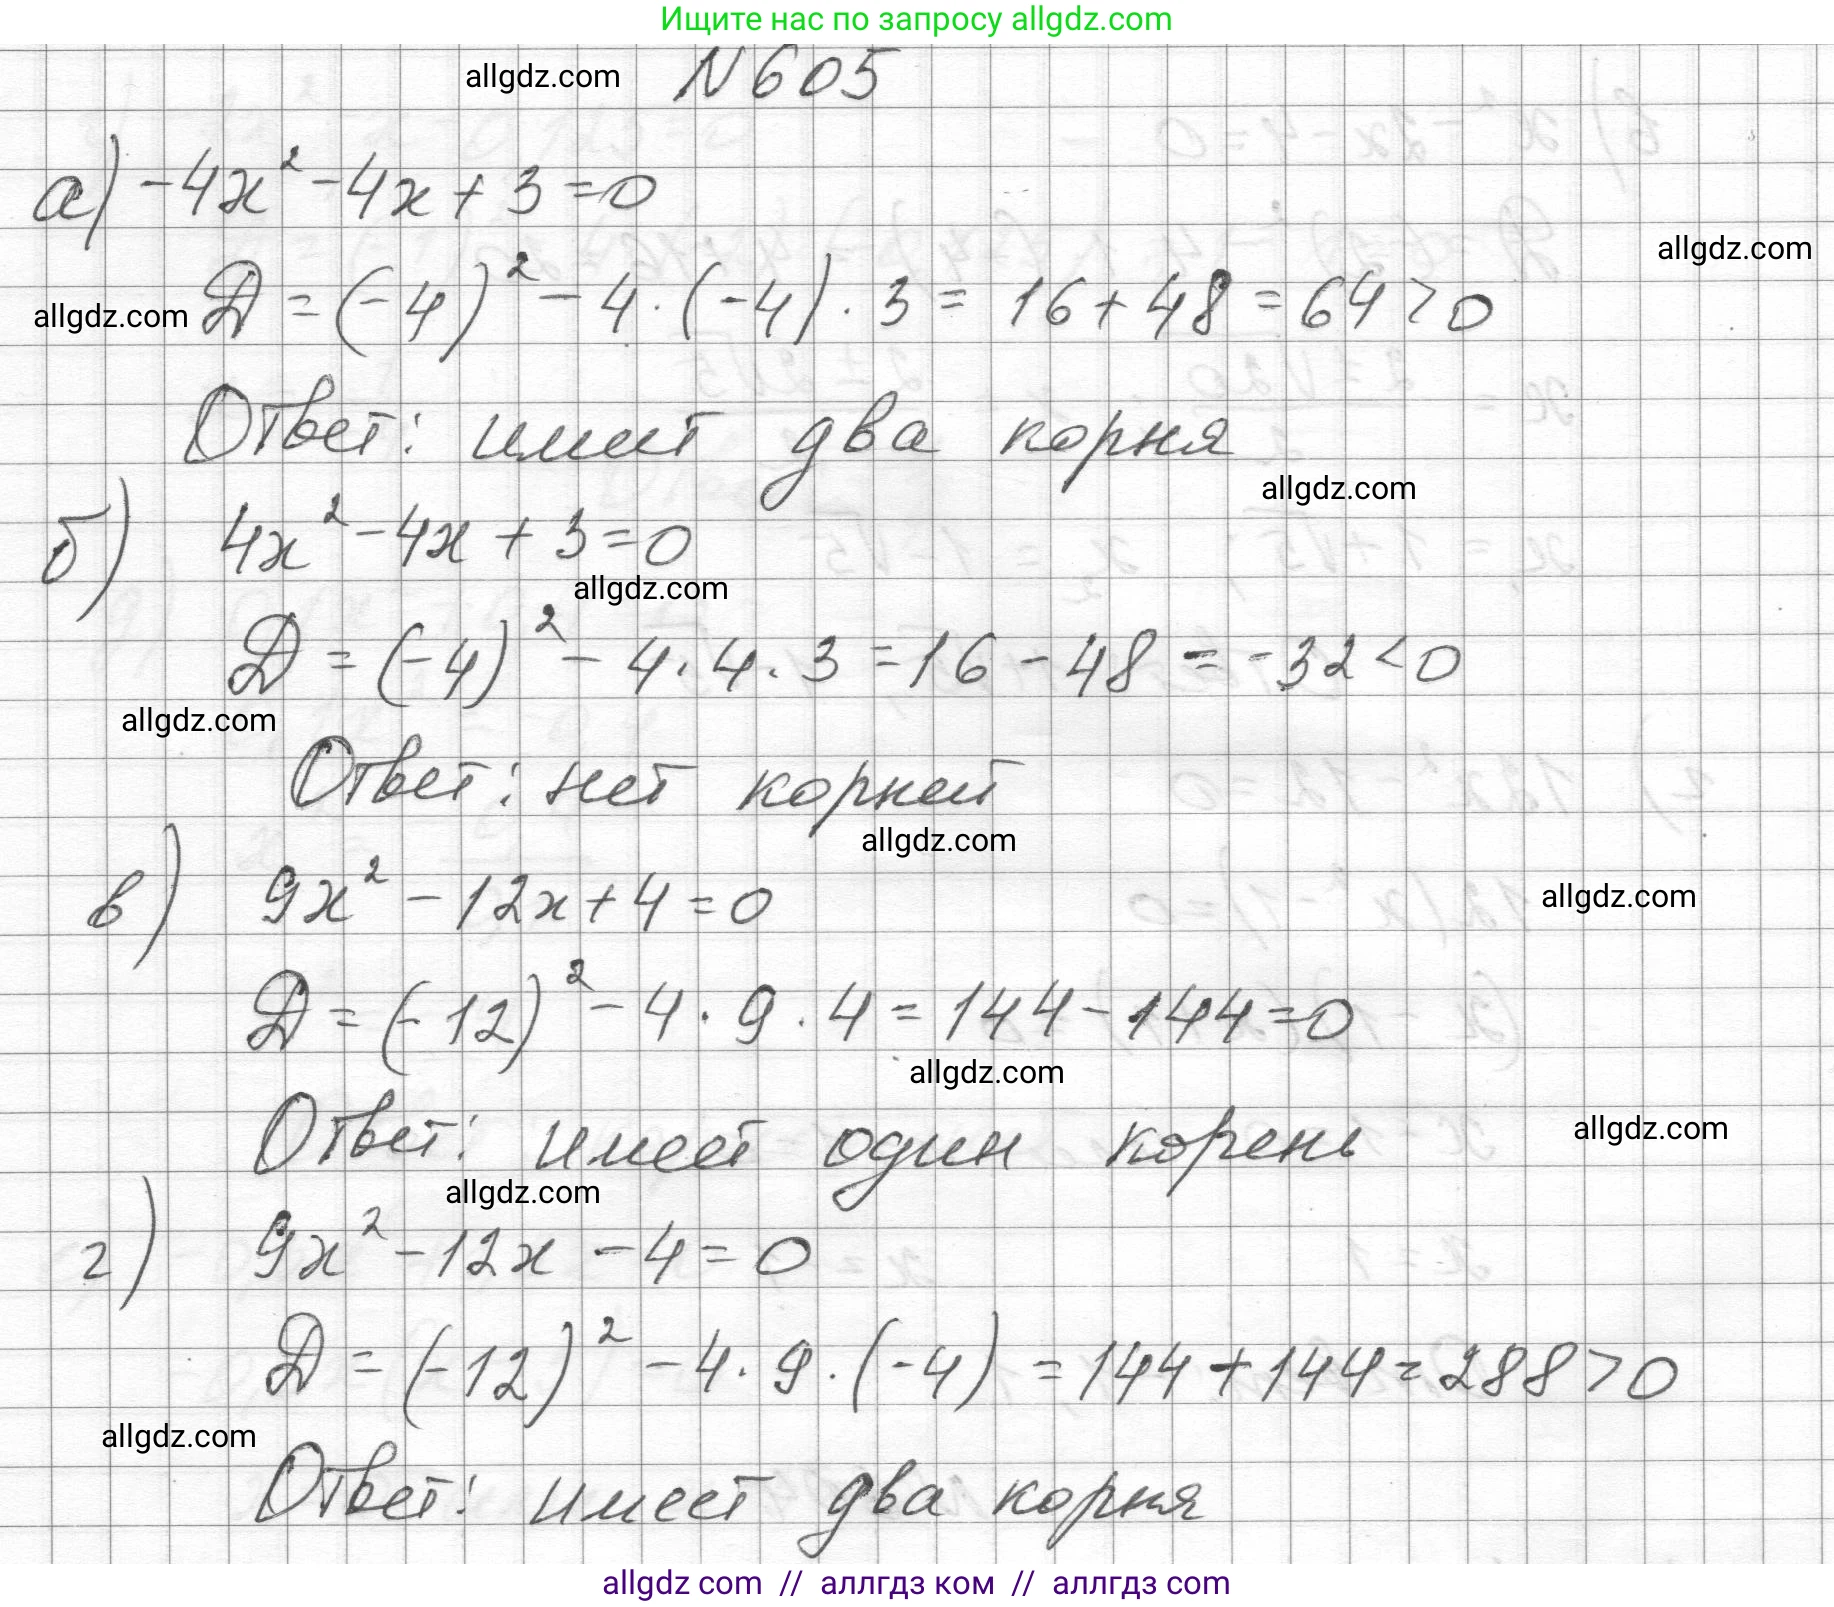 Ищите нас по запросу allgdz.com
allgdz.com N605
а) -4x² - 4x + 3 = 0
allgdz.com
allgdz.com Д = (-4)² - 4 · (-4) · 3 = 16 + 48 = 64 > 0
Ответ: имеет два корня
allgdz.com
б) 4x² - 4x + 3 = 0
allgdz.com
Д = (-4)² - 4 · 4 · 3 = 16 - 48 = -32 < 0
allgdz.com
Ответ: нет корней
allgdz.com
в) 9x² - 12x + 4 = 0
allgdz.com
Д = (-12)² - 4 · 9 · 4 = 144 - 144 = 0
allgdz.com
Ответ: имеет один корень
allgdz.com
allgdz.com
г) 9x² - 12x - 4 = 0
Д = (-12)² - 4 · 9 · (-4) = 144 + 144 = 288 > 0
allgdz.com
Ответ: имеет два корня
allgdz com // аллгдз ком // аллгдз com